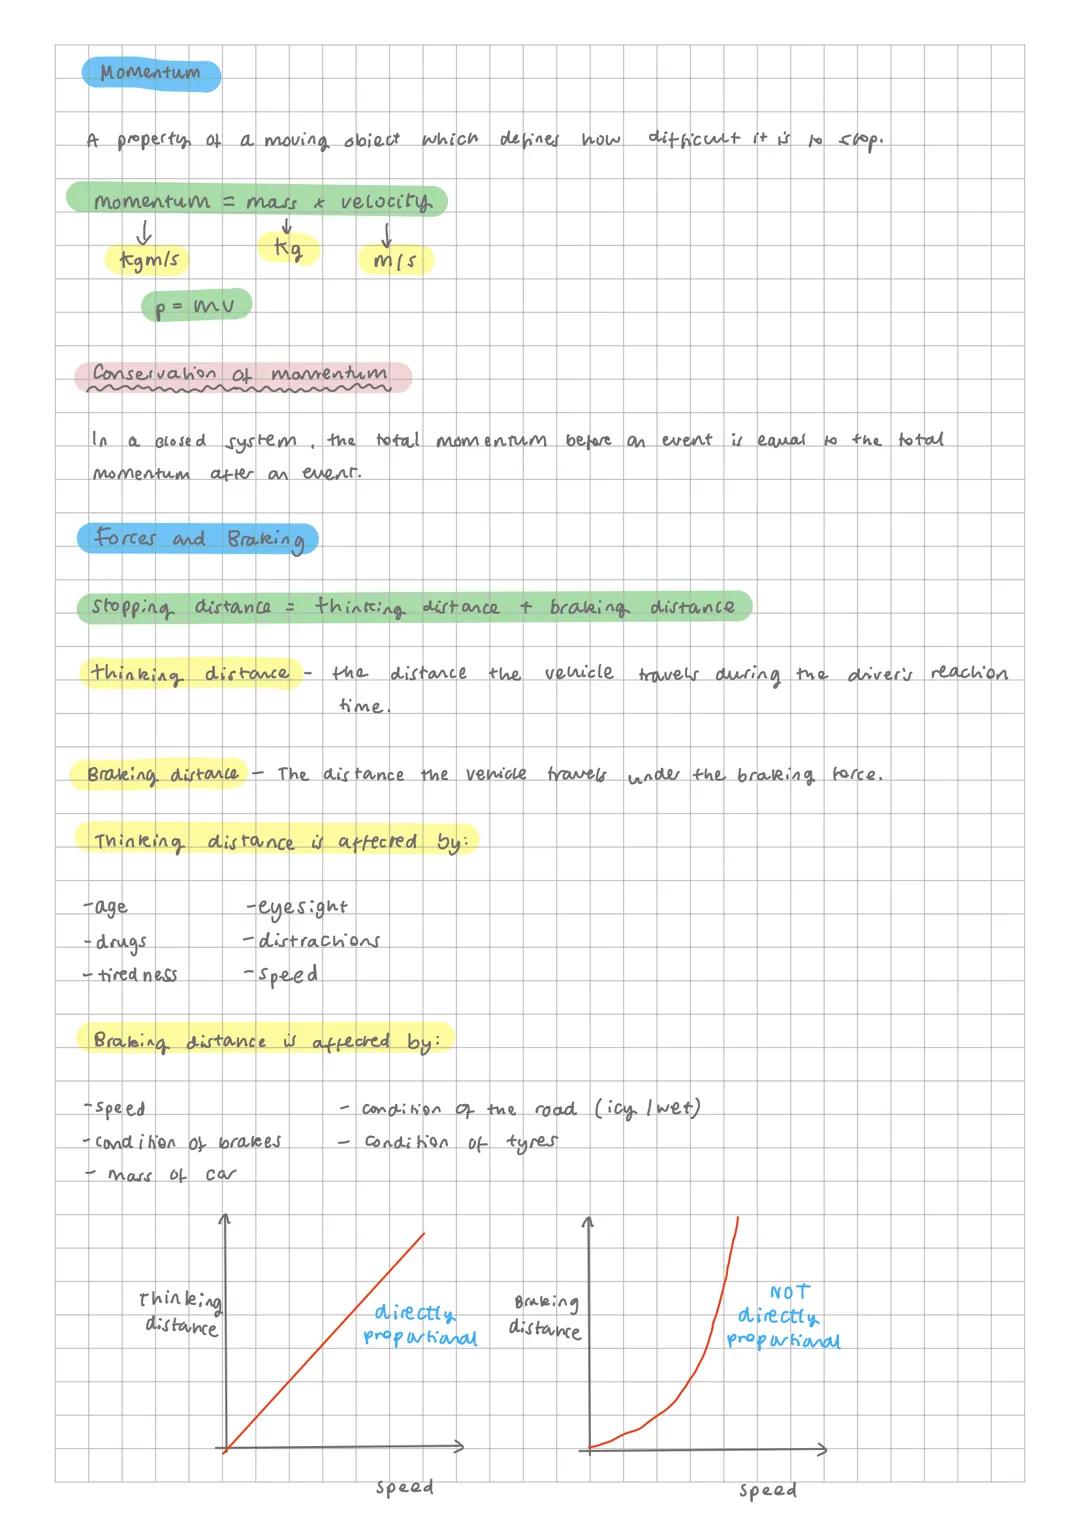 Momentum
A property of a moving object which defines how difficult it is to stop.
momentum = mass x velocity
kgm/s kg m/s
p = mv
Conservation of momentum
In a closed system, the total momentum before an event is equal to the total
momentum after an event.
Forces and Braking
Stopping distance = thinking distance + braking distance
thinking distance - the distance the vehicle travels during the driver's reaction
time.
Braking distance - The distance the vehicle travels under the braking force.
Thinking distance is affected by:
-age -eyesight
-drugs -distractions
-tiredness -speed
Braking distance is affected by:
-speed - condition of the road (icy/wet)
-condition of brakes - condition of tyres
- mass of car
Thinking
distance
directly
proportional
speed
Braking
distance
NOT
directly
proportional
speed